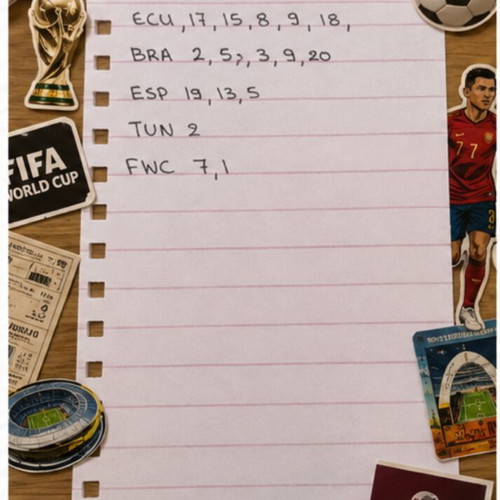 ECU, 17, 15, 8, 9, 18,
BRA 2, 5, , 3, 9, 20
ESP 19, 13, 5
TUN 2
FWC 7, 1
FIFA
WORLD CUP
77